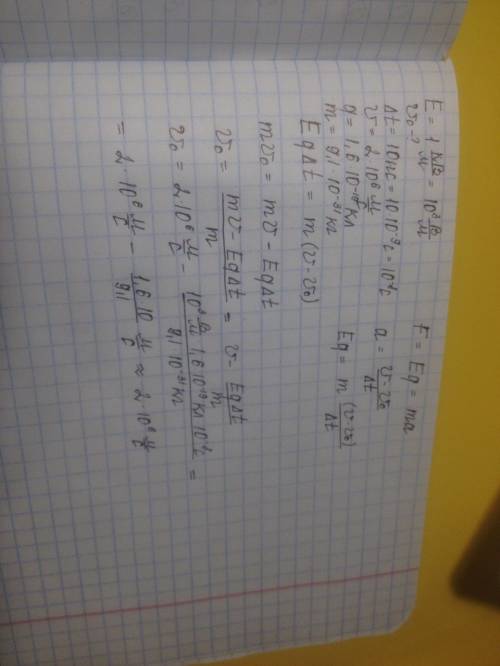 E = 1 кВ/м = 10³ В/м
v₀ - ?
Δt = 10нс = 10·10⁻⁹с = 10⁻⁸с
v = 2·10⁶ м/с
q = 1,6·10⁻¹⁹Кл
m = 9,1·10⁻³¹кг
F = Eq = ma
a = (v-v₀)/Δt
Eq = m (v-v₀)/Δt
EqΔt = m(v-v₀)
mv₀ = mv - EqΔt
v₀ = (mv - EqΔt)/m = v - EqΔt/m
v₀ = 2·10⁶ м/с - (10³ В/м 1,6·10⁻¹⁹Кл 10⁻⁸с)/(9,1·10⁻³¹кг) =
= 2·10⁶ м/с - 1,6·10/9,1 м/с ≈ 2·10⁶ м/с